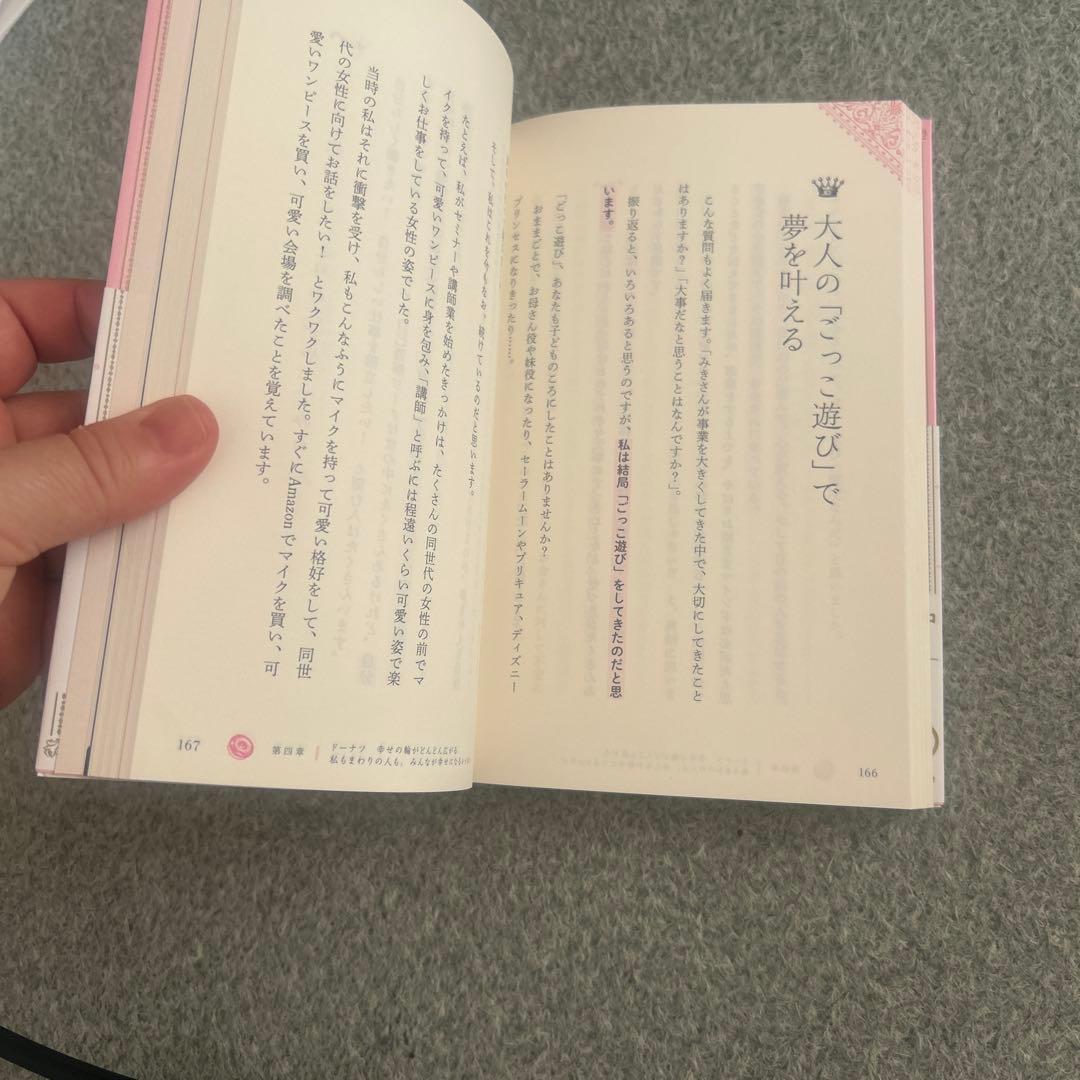 大人の「ごっこ遊び」で
夢を叶える
こんな質問もよく届きます。「みきさんが事業を大きくしてきた中で、大切にしてきたこと
はありますか?」「大事だなと思うことはなんですか?」。
振り返ると、いろいろあると思うのですが、私は結局「ごっこ遊び」をしてきたのだと思
います。
「ごっこ遊び」、あなたも子どものころにしたことはありませんか?
おままごとで、お母さん役や妹役になったり、セーラームーンやプリキュア、ディズニー
プリンセスになりきったり……。
166
そして、私はこれを今もなお、続けているのだと思います。
たとえば、私がセミナーや講師業を始めたきっかけは、たくさんの同世代の女性の前でマ
イクを持って、可愛いワンピースに身を包み、「講師」と呼ぶには程遠いくらい可愛い姿で楽
しくお仕事をしている女性の姿でした。
当時の私はそれに衝撃を受け、私もこんなふうにマイクを持って可愛い格好をして、同世
代の女性に向けてお話をしたい! とワクワクしました。すぐにAmazonでマイクを買い、可
愛いワンピースを買い、可愛い会場を調べたことを覚えています。
167
第四章
ドーナツ 幸せの輪がどんどん広がる
私もまわりの人も、みんなが幸せになる